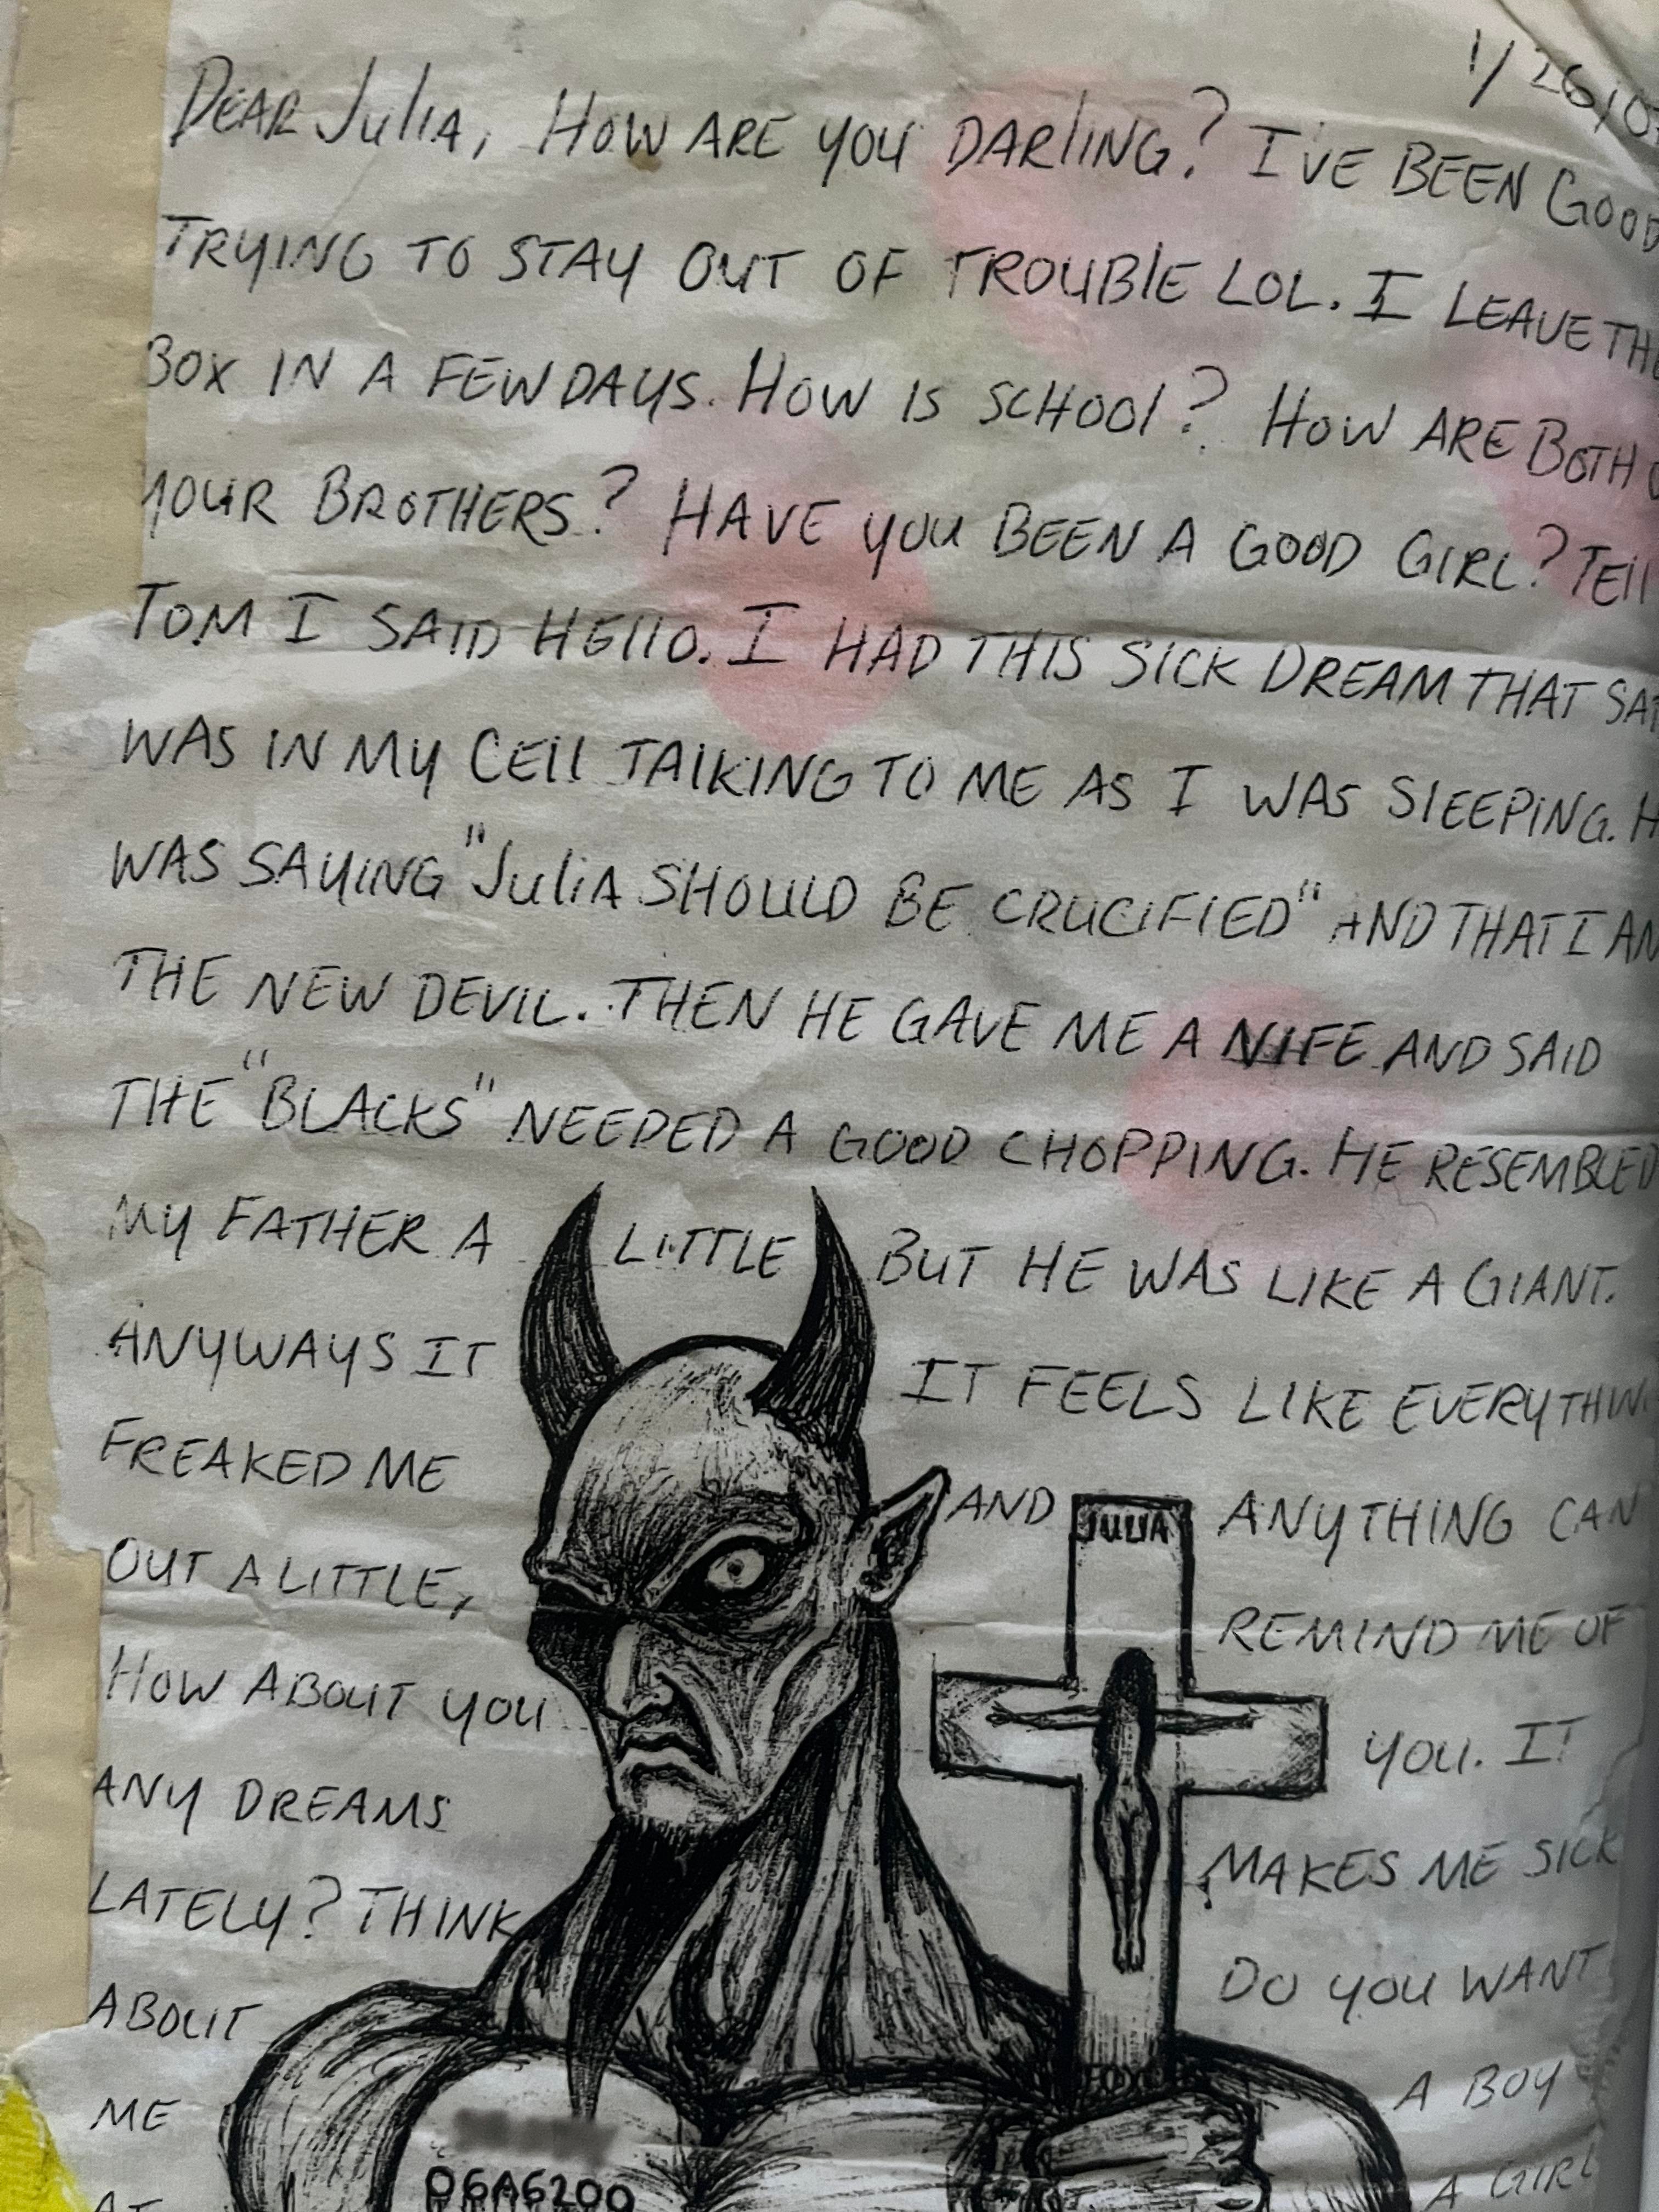 1/26/0
DEAR JULIA, HOW ARE YOU DARLING? I'VE BEEN GOOD
TRYING TO STAY OUT OF TROUBLE LOL. I LEAVE THE
BOX IN A FEW DAYS. HOW IS SCHOOL? HOW ARE BOTH
YOUR BROTHERS? HAVE YOU BEEN A GOOD GIRL? TELL
TOM I SAID HELLO. I HAD THIS SICK DREAM THAT SAT
WAS IN MY CELL TALKING TO ME AS I WAS SLEEPING. H
WAS SAYING "JULIA SHOULD BE CRUCIFIED" AND THAT I AM
THE NEW DEVIL. THEN HE GAVE ME A NIFE AND SAID
THE "BLACKS" NEEDED A GOOD CHOPPING. HE RESEMBLED
MY FATHER A LITTLE BUT HE WAS LIKE A GIANT.
ANYWAYS IT
FREAKED ME
OUT A LITTLE,
HOW ABOUT YOU
ANY DREAMS
LATELY? THINK
ABOUT
ME
AT
IT FEELS LIKE EVERYTHIN
AND ANYTHING CAN
REMIND ME OF
YOU. IT
MAKES ME SICK
DO YOU WANT
A BOY
A GIRL
JULIA
06A6200